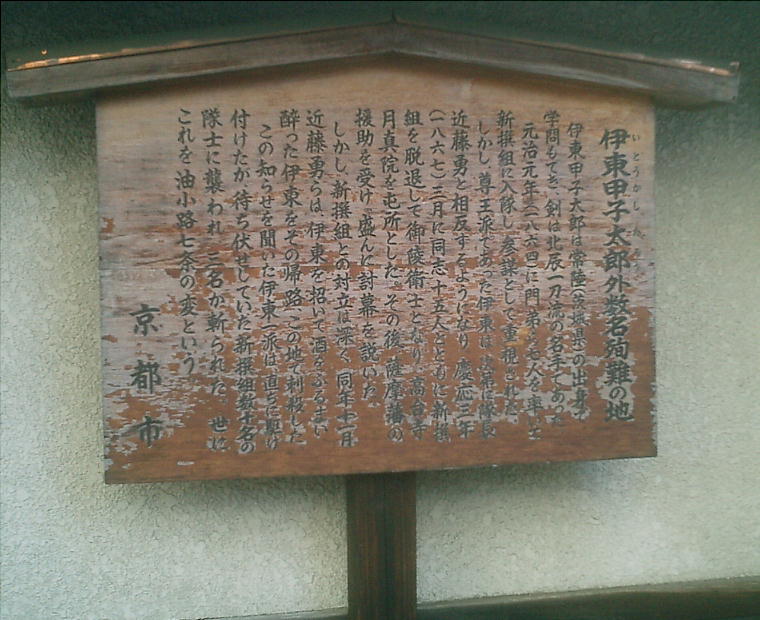 伊東甲子太郎外数名殉難の地
伊東甲子太郎は常陸(茨城県)の出身で
学問もでき、剣は北辰一刀流の名手であった
元治元年(一八六四)に門弟ら七人を率いて
新撰組に入隊し、参謀として重視された。
しかし、尊王派であった伊東は、次第に隊長
近藤勇と相反するようになり、慶応三年
(一八六七)三月に同志十五人とともに新撰
組を脱退して御陵衛士となり、高台寺
月真院を屯所とした。その後、薩摩藩の
援助を受け、盛んに討幕を説いた。
しかし、新撰組との対立は深く、同年十一月
近藤勇らは、伊東を招いて酒をふるまい
酔った伊東をその帰路、この地で刺殺した
この知らせを聞いた伊東一派は、直ちに駆け
付けたが、待ち伏せしていた新撰組数十名の
隊士に襲われ、三名が斬られた。世に
これを油小路七条の変という。
京都市